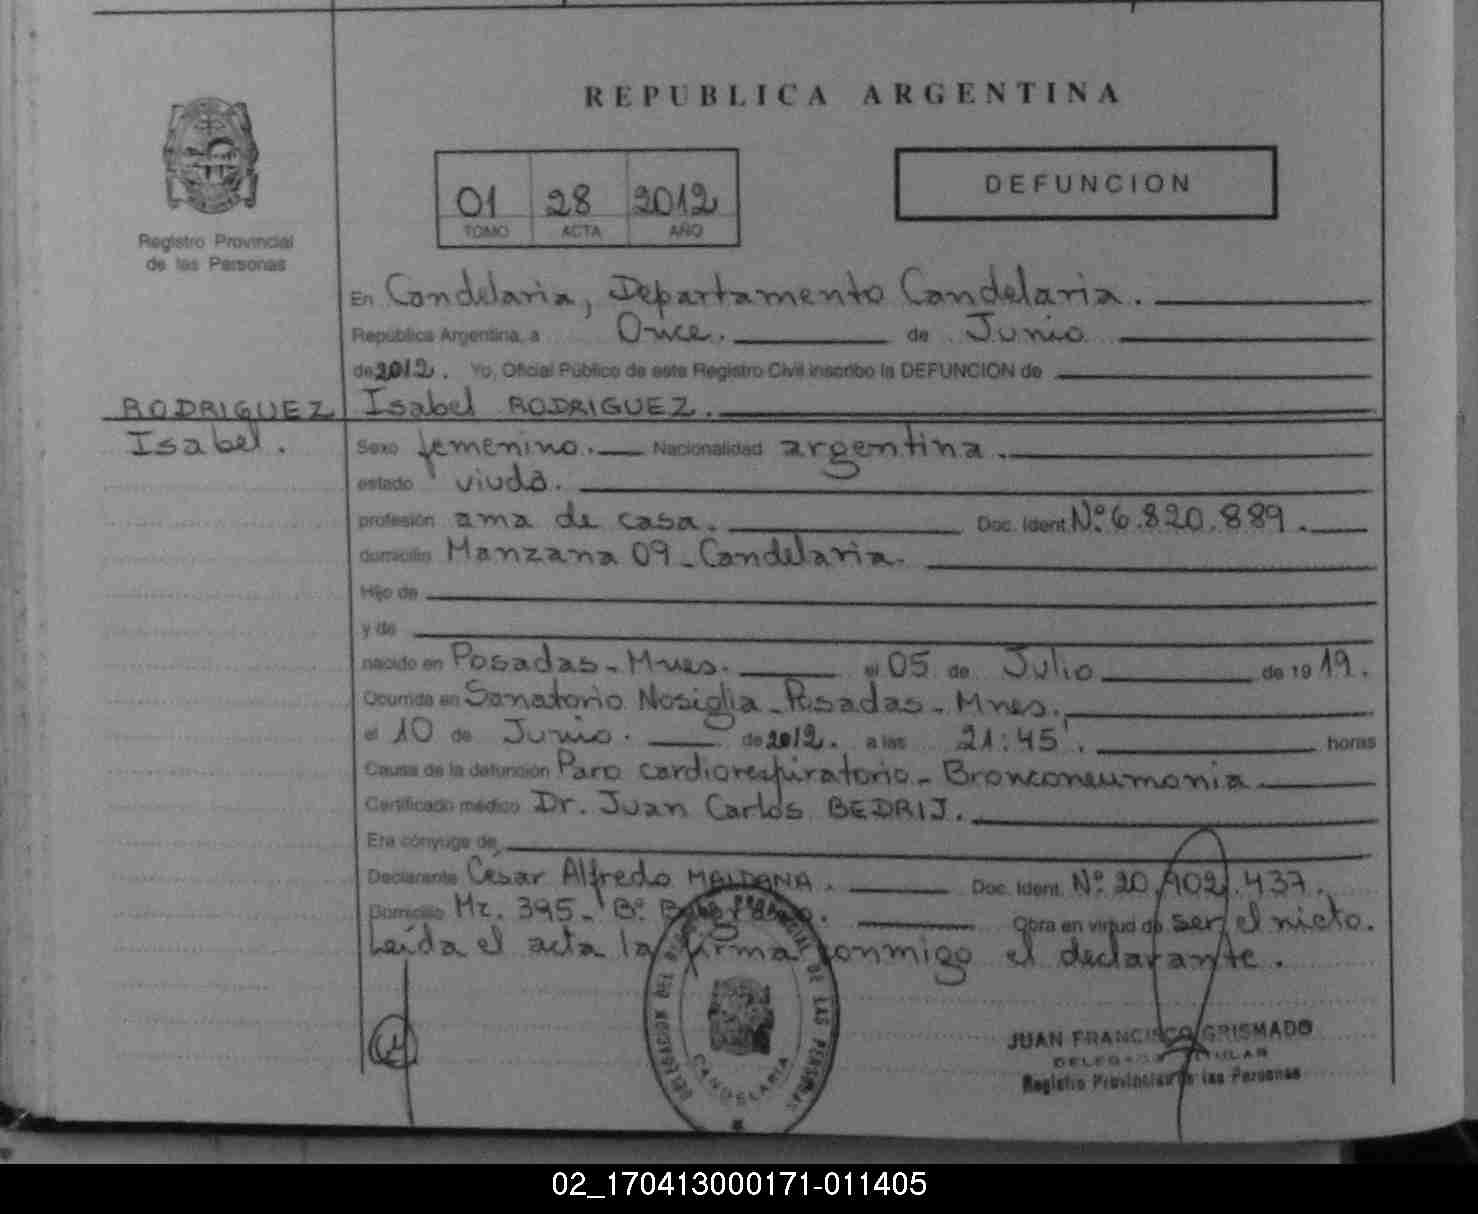 REPUBLICA ARGENTINA
01 28 2012
TOMO ACTA AÑO
DEFUNCION
Registro Provincial
de las Personas
En Candelaria, Departamento Candelaria.
República Argentina, a Once. de Junio
de 2012. Yo, Oficial Público de este Registro Civil inscribo la DEFUNCION de
RODRIGUEZ
Isabel.
Isabel RODRIGUEZ.
Sexo femenino. Nacionalidad argentina.
estado viuda.
profesión ama de casa. Doc. Ident. Nº 6.820.889.
domicilio Manzana 09 - Candelaria.
Hijo de
y de
nacido en Posadas - Mnes. el 05 de Julio de 19 19.
Ocurrida en Sanatorio Nosiglia - Posadas - Mnes.
el 10 de Junio. de 2012. a las 21:45'. horas
Causa de la defunción Paro cardiorespiratorio - Bronconeumonia
Certificado médico Dr. Juan Carlos BEDRIJ.
Era cónyuge de
Declarante César Alfredo MALDANA. Doc. Ident. Nº 20.902.437.
Domicilio Mz. 395 - Bº Obra en virtud de ser el nieto.
Leída el acta la firma conmigo el declarante.
DELEGACION DEL PROVINCIAL DE LAS PERSONAS
CANDELARIA
JUAN FRANCISCO GRISMADO
DELEGADO TITULAR
Registro Provincial de las Personas
02_170413000171-011405